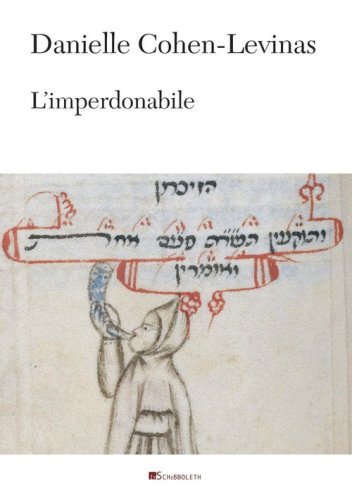 Danielle Cohen-Levinas
L'imperdonabile
הזיכרון
ותוקעין תשר״ת פעם אחת
ואומרין
SCHIBBOLETH